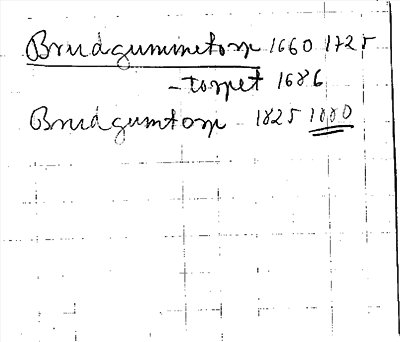 Brudgummetorp 1660 1725
-torpet 1686
Brudgumtorp 1825 1880